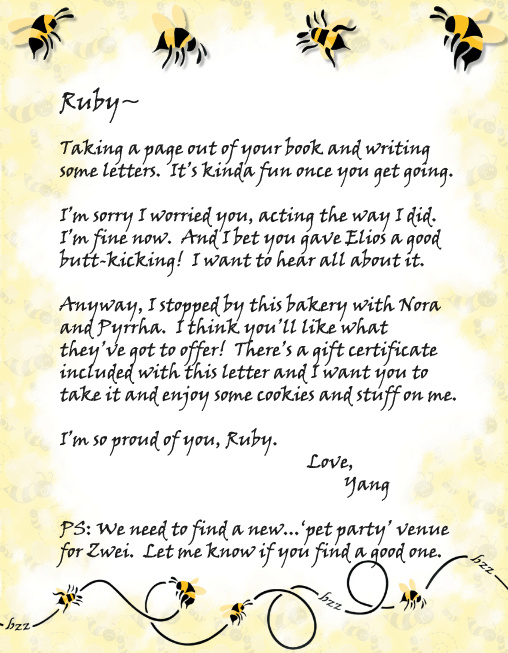 Ruby~
Taking a page out of your book and writing
some letters. It's kinda fun once you get going.
I'm sorry I worried you, acting the way I did.
I'm fine now. And I bet you gave Elios a good
butt-kicking! I want to hear all about it.
Anyway, I stopped by this bakery with Nora
and Pyrrha. I think you'll like what
they've got to offer! There's a gift certificate
included with this letter and I want you to
take it and enjoy some cookies and stuff on me.
I'm so proud of you, Ruby.
Love,
Yang
PS: We need to find a new...'pet party' venue
for Zwei. Let me know if you find a good one.
bzz
bzz
bzz